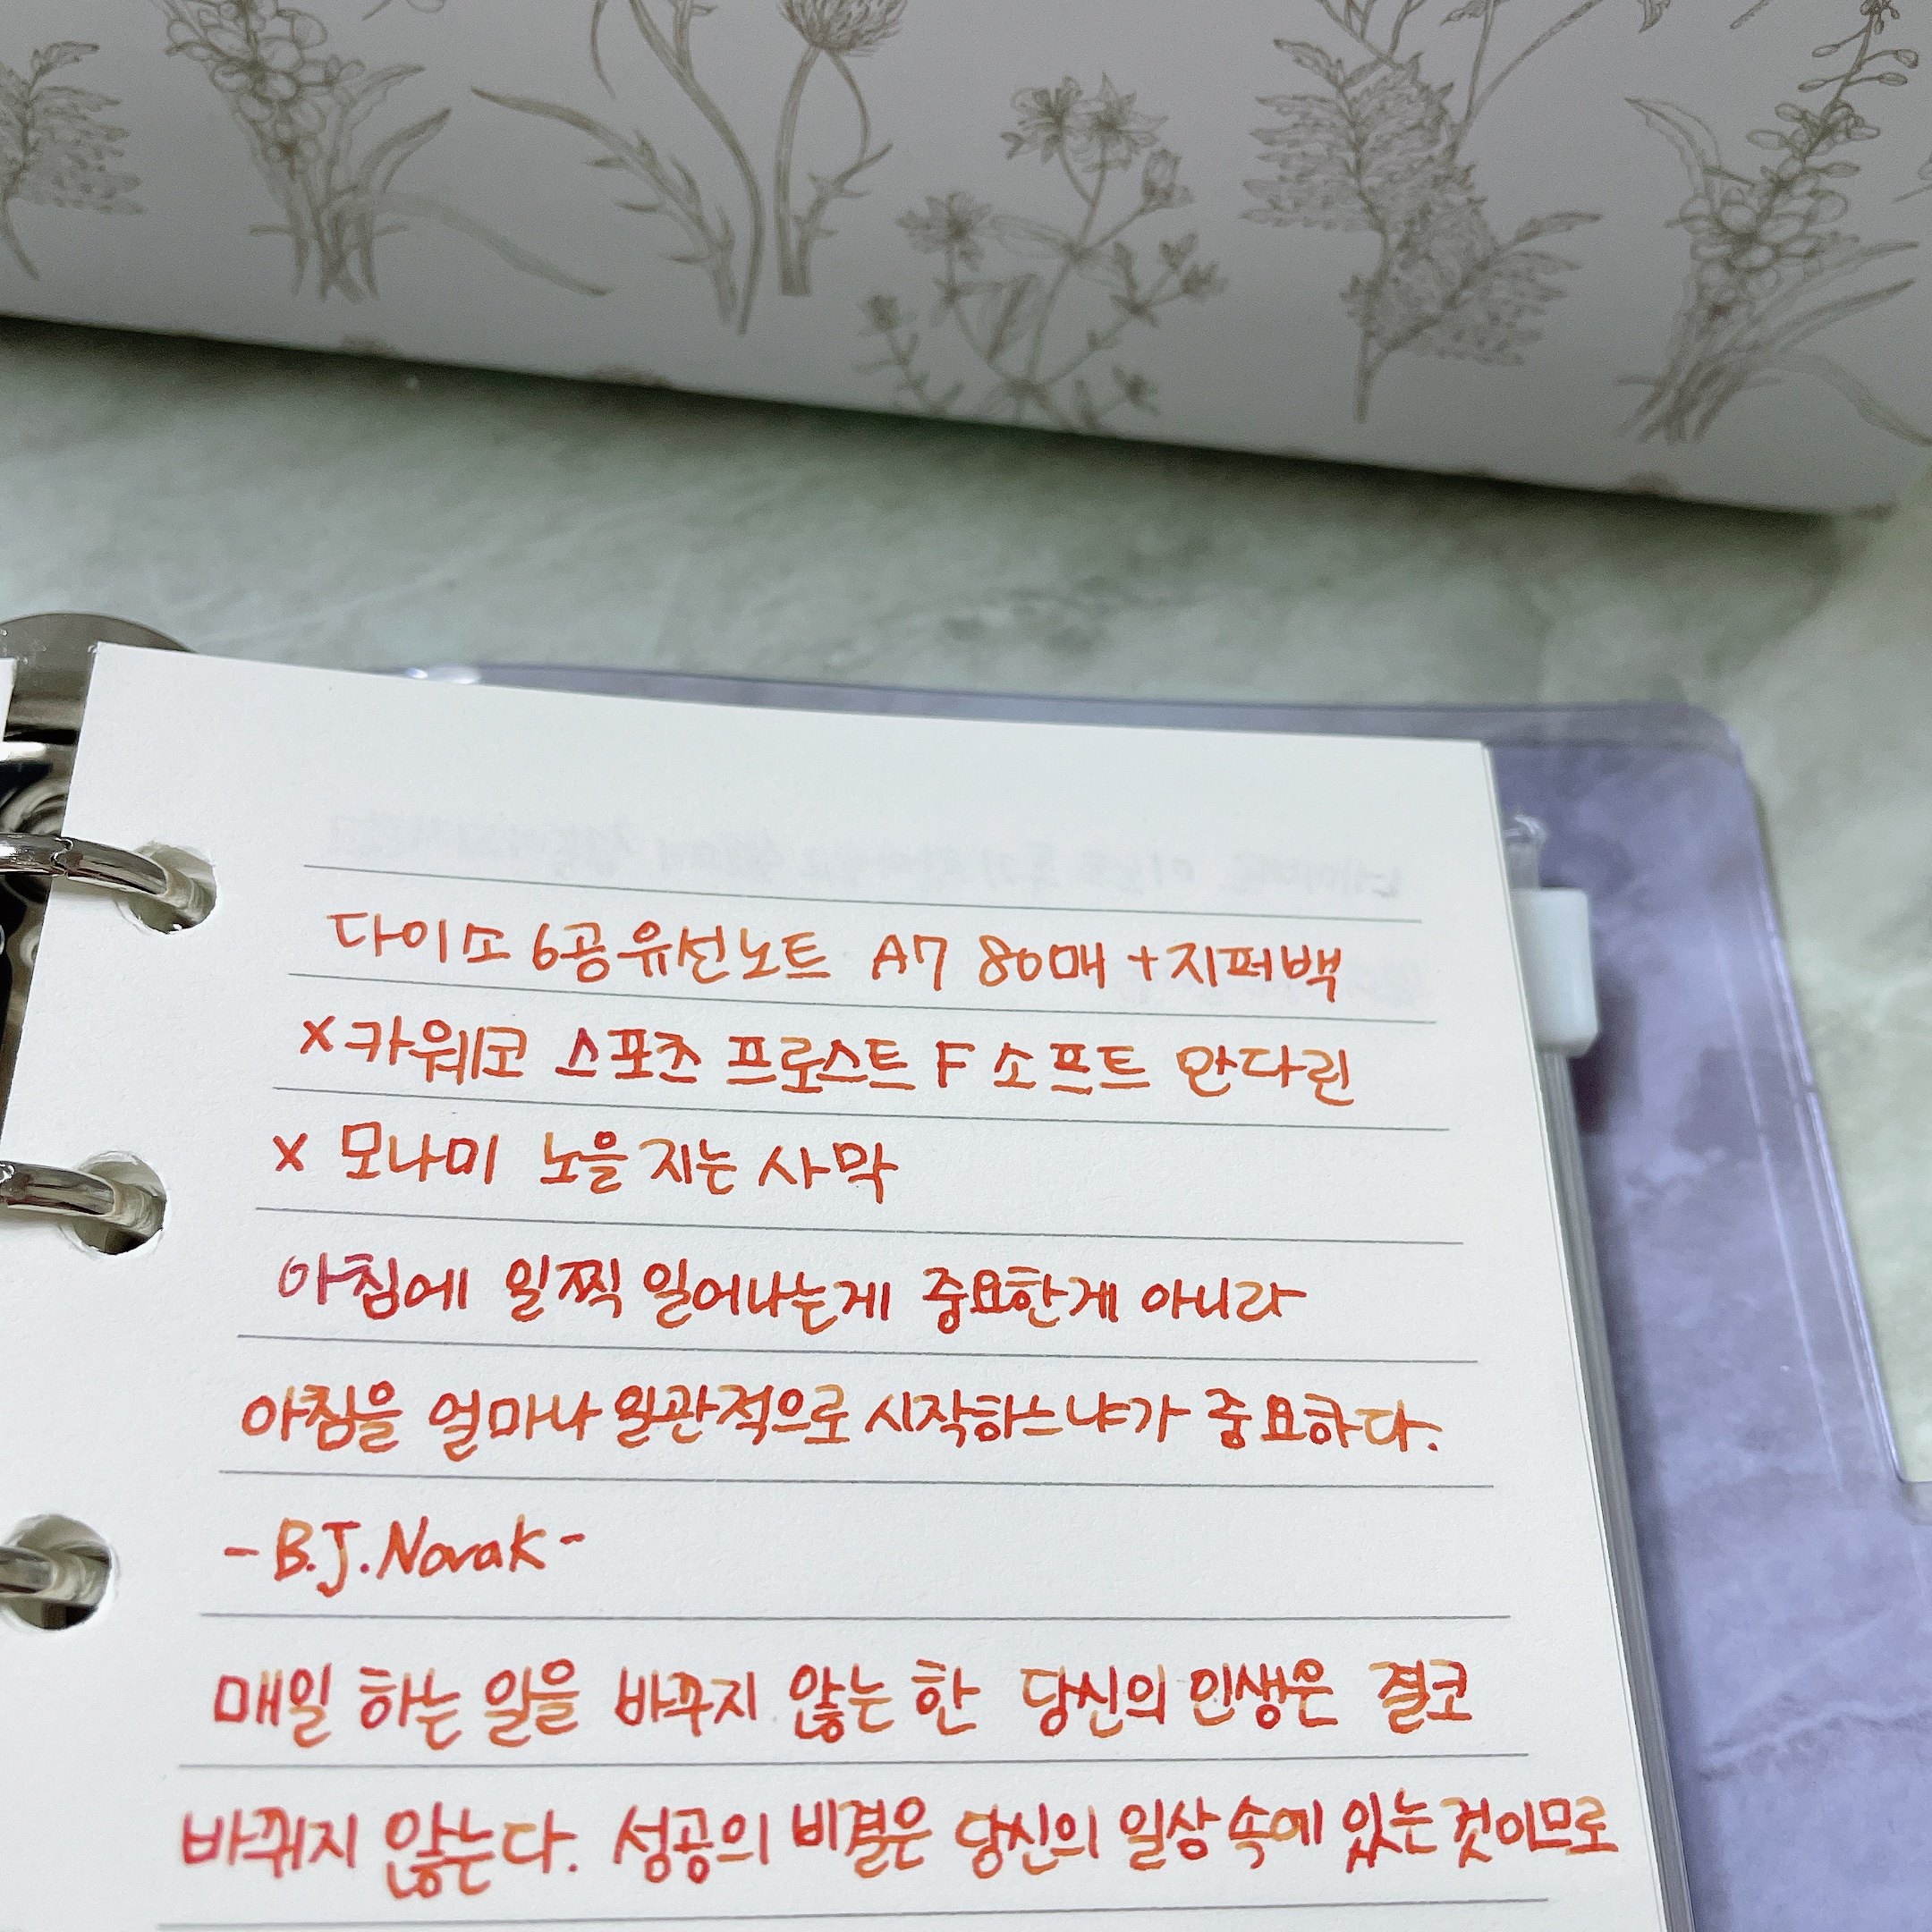 다이소 6공유선노트 A7 80매+지퍼백
x카웨코 스포츠 프로스트 F 소프트 만다린
x 모나미 노을 지는 사막
아침에 일찍 일어나는게 중요한게 아니라
아침을 얼마나 일관적으로 시작하느냐가 중요하다.
-B.J.Novak-
매일 하는 일을 바꾸지 않는 한 당신의 인생은 결코
바뀌지 않는다. 성공의 비결은 당신의 일상 속에 있는 것이므로